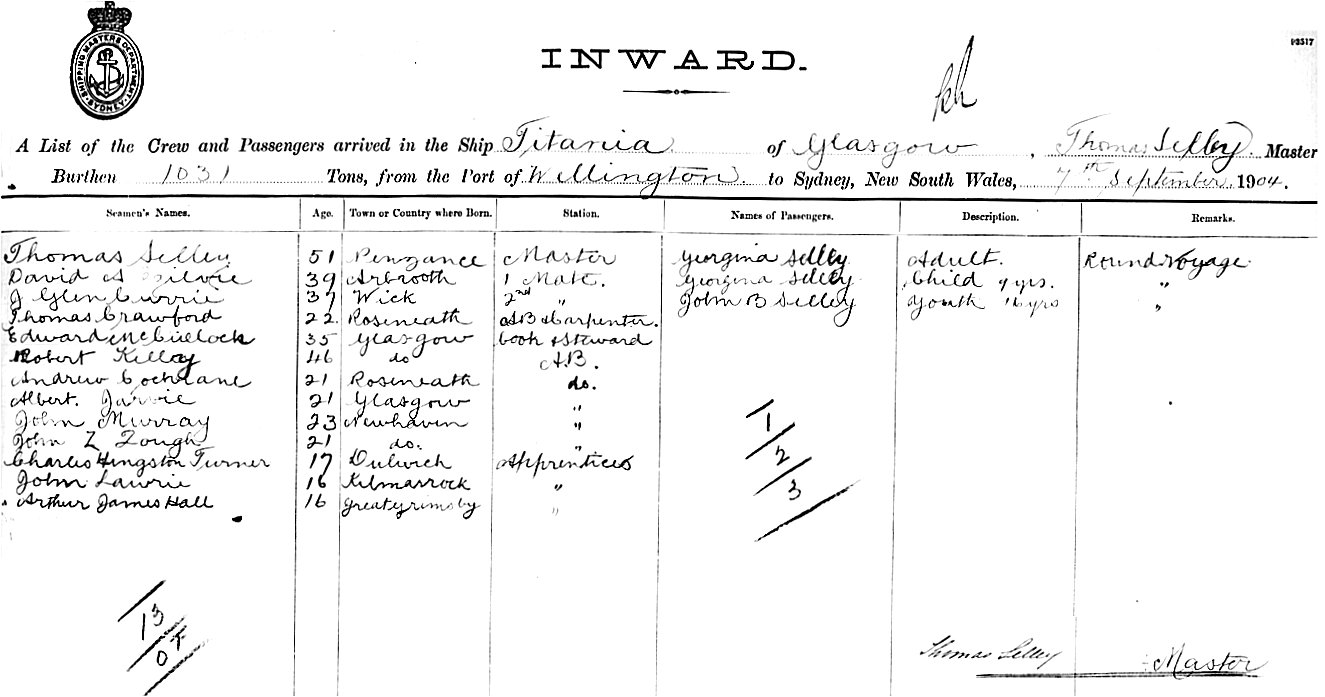 SHIPPING MASTERS DEPARTMENT SYDNEY
INWARD.
A List of the Crew and Passengers arrived in the Ship Titania of Glasgow, Thomas Selley Master
Burthen 1031 Tons, from the Port of Wellington to Sydney, New South Wales, 7th September 1904.
Seamen's Names. Age. Town or Country where Born. Station. Names of Passengers. Description. Remarks.
Thomas Selley 51 Penzance Master Georgina Selley Adult. Round Voyage
David A Ogilvie 39 Arbroath 1 Mate. Georgina Selley Child 9 yrs. "
J Glen Currie 37 Wick 2nd " John B Selley Youth 16 yrs "
Thomas Crawford 22 Roseneath AB & Carpenter.
Edward McCullock 35 Glasgow Cook & Steward
Robert Kelloy 46 do A.B.
Andrew Cochrane 21 Roseneath do.
Albert. Jarvie 21 Glasgow "
John Murray 23 Newhaven "
John Z 21 do. "
Charles Hingston Turner 17 Dulwich Apprentices
John Lawrie 16 Kilmarrock "
Arthur James Hall 16 Great Grimsby "
1/2/3
13/
Thomas Selley Master